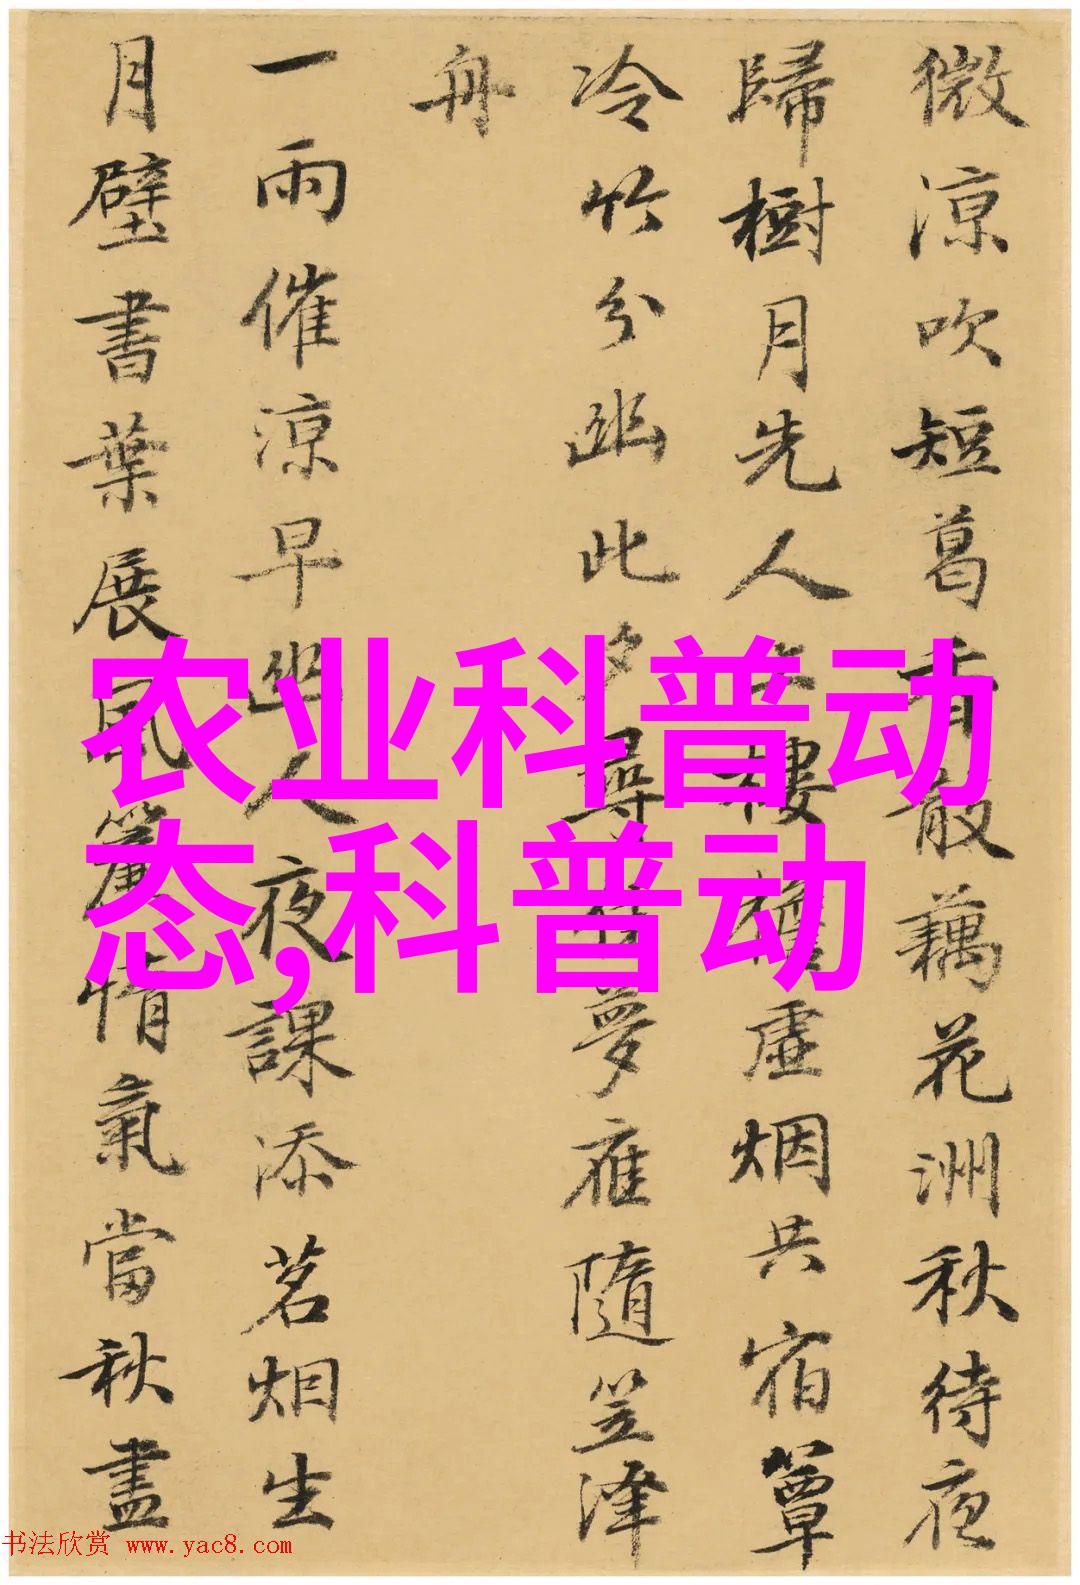 微涼吹短葛香散藕花洲秋待夜
歸樹月先人樓檐虛烟共宿簟
冷竹分幽此夕尋夢雁隨笠澤
舟
一雨催涼早幽人夜課添茗烟生
月壁書葉展風簾情氣當秋盡
农业科普动
态,科普动
书法欣赏 www.yac8.com